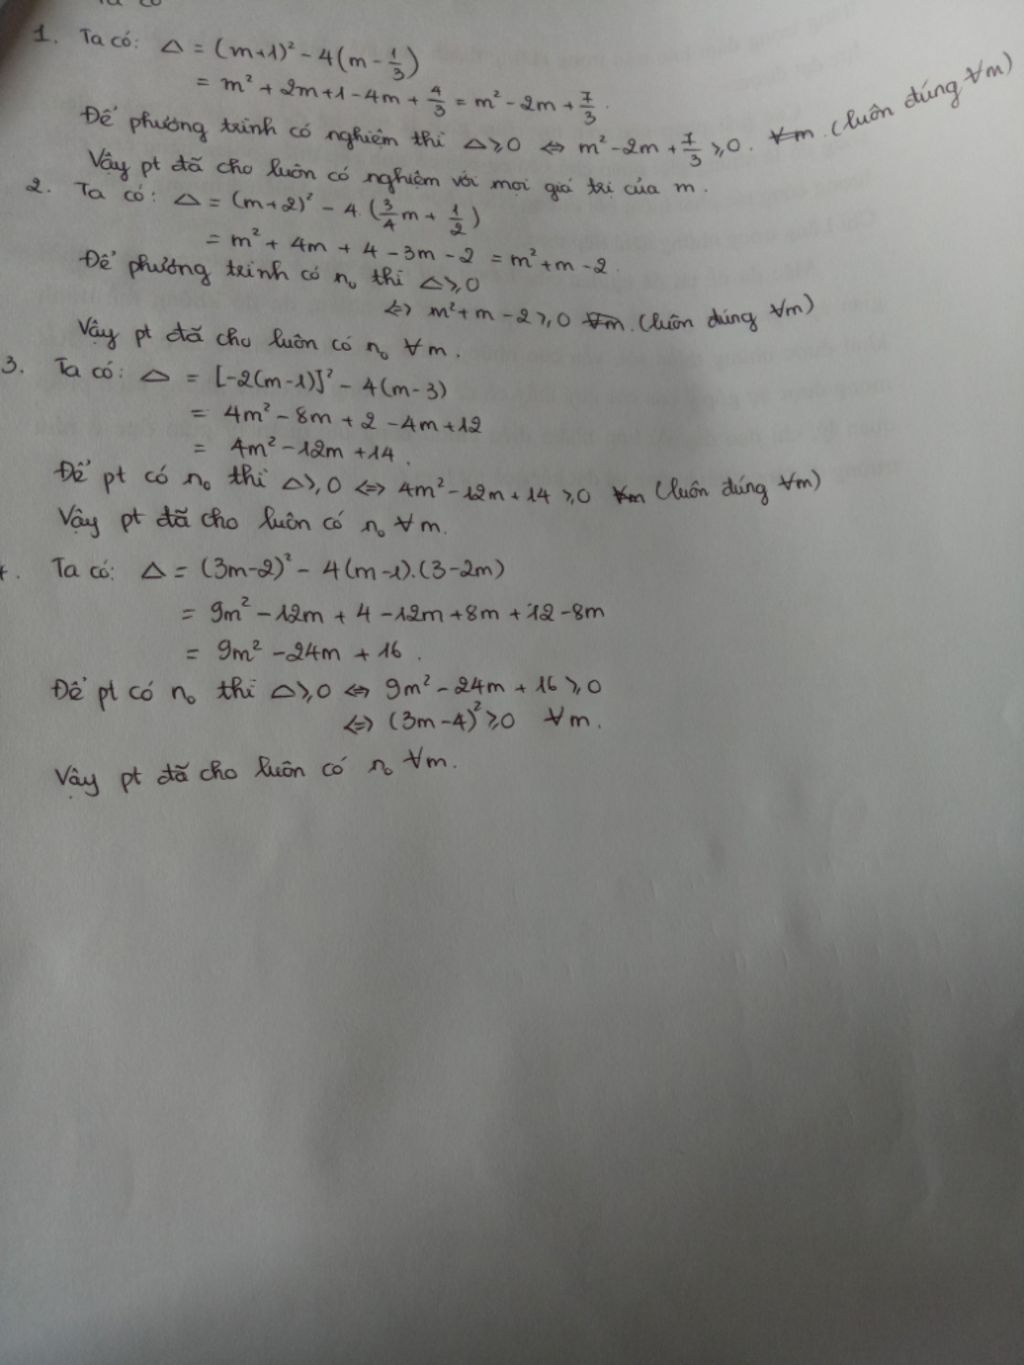 Ta có
1. Ta có: Δ = (m+1)² - 4(m - 1/3)
= m² + 2m + 1 - 4m + 4/3 = m² - 2m + 7/3.
Để phương trình có nghiệm thì Δ ⩾ 0 ⇔ m² - 2m + 7/3 ⩾ 0. ∀m. (luôn đúng ∀m)
Vậy pt đã cho luôn có nghiệm với mọi giá trị của m.
2. Ta có: Δ = (m+2)² - 4.(3/4m + 1/2)
= m² + 4m + 4 - 3m - 2 = m² + m - 2.
Để phương trình có n₀ thì Δ ⩾ 0
⇔ m² + m - 2 ⩾ 0 ∀m. (luôn đúng ∀m)
Vậy pt đã cho luôn có n₀ ∀m.
3. Ta có: Δ = [-2(m-1)]² - 4(m-3)
= 4m² - 8m + 2 - 4m + 12
= 4m² - 12m + 14.
Để pt có n₀ thì Δ ⩾ 0 ⇔ 4m² - 12m + 14 ⩾ 0 ∀m (luôn đúng ∀m)
Vậy pt đã cho luôn có n₀ ∀m.
Ta có: Δ = (3m-2)² - 4(m-1).(3-2m)
= 9m² - 12m + 4 - 12m + 8m + 12 - 8m
= 9m² - 24m + 16.
Để pt có n₀ thì Δ ⩾ 0 ⇔ 9m² - 24m + 16 ⩾ 0
⇔ (3m-4)² ⩾ 0 ∀m.
Vậy pt đã cho luôn có n₀ ∀m.